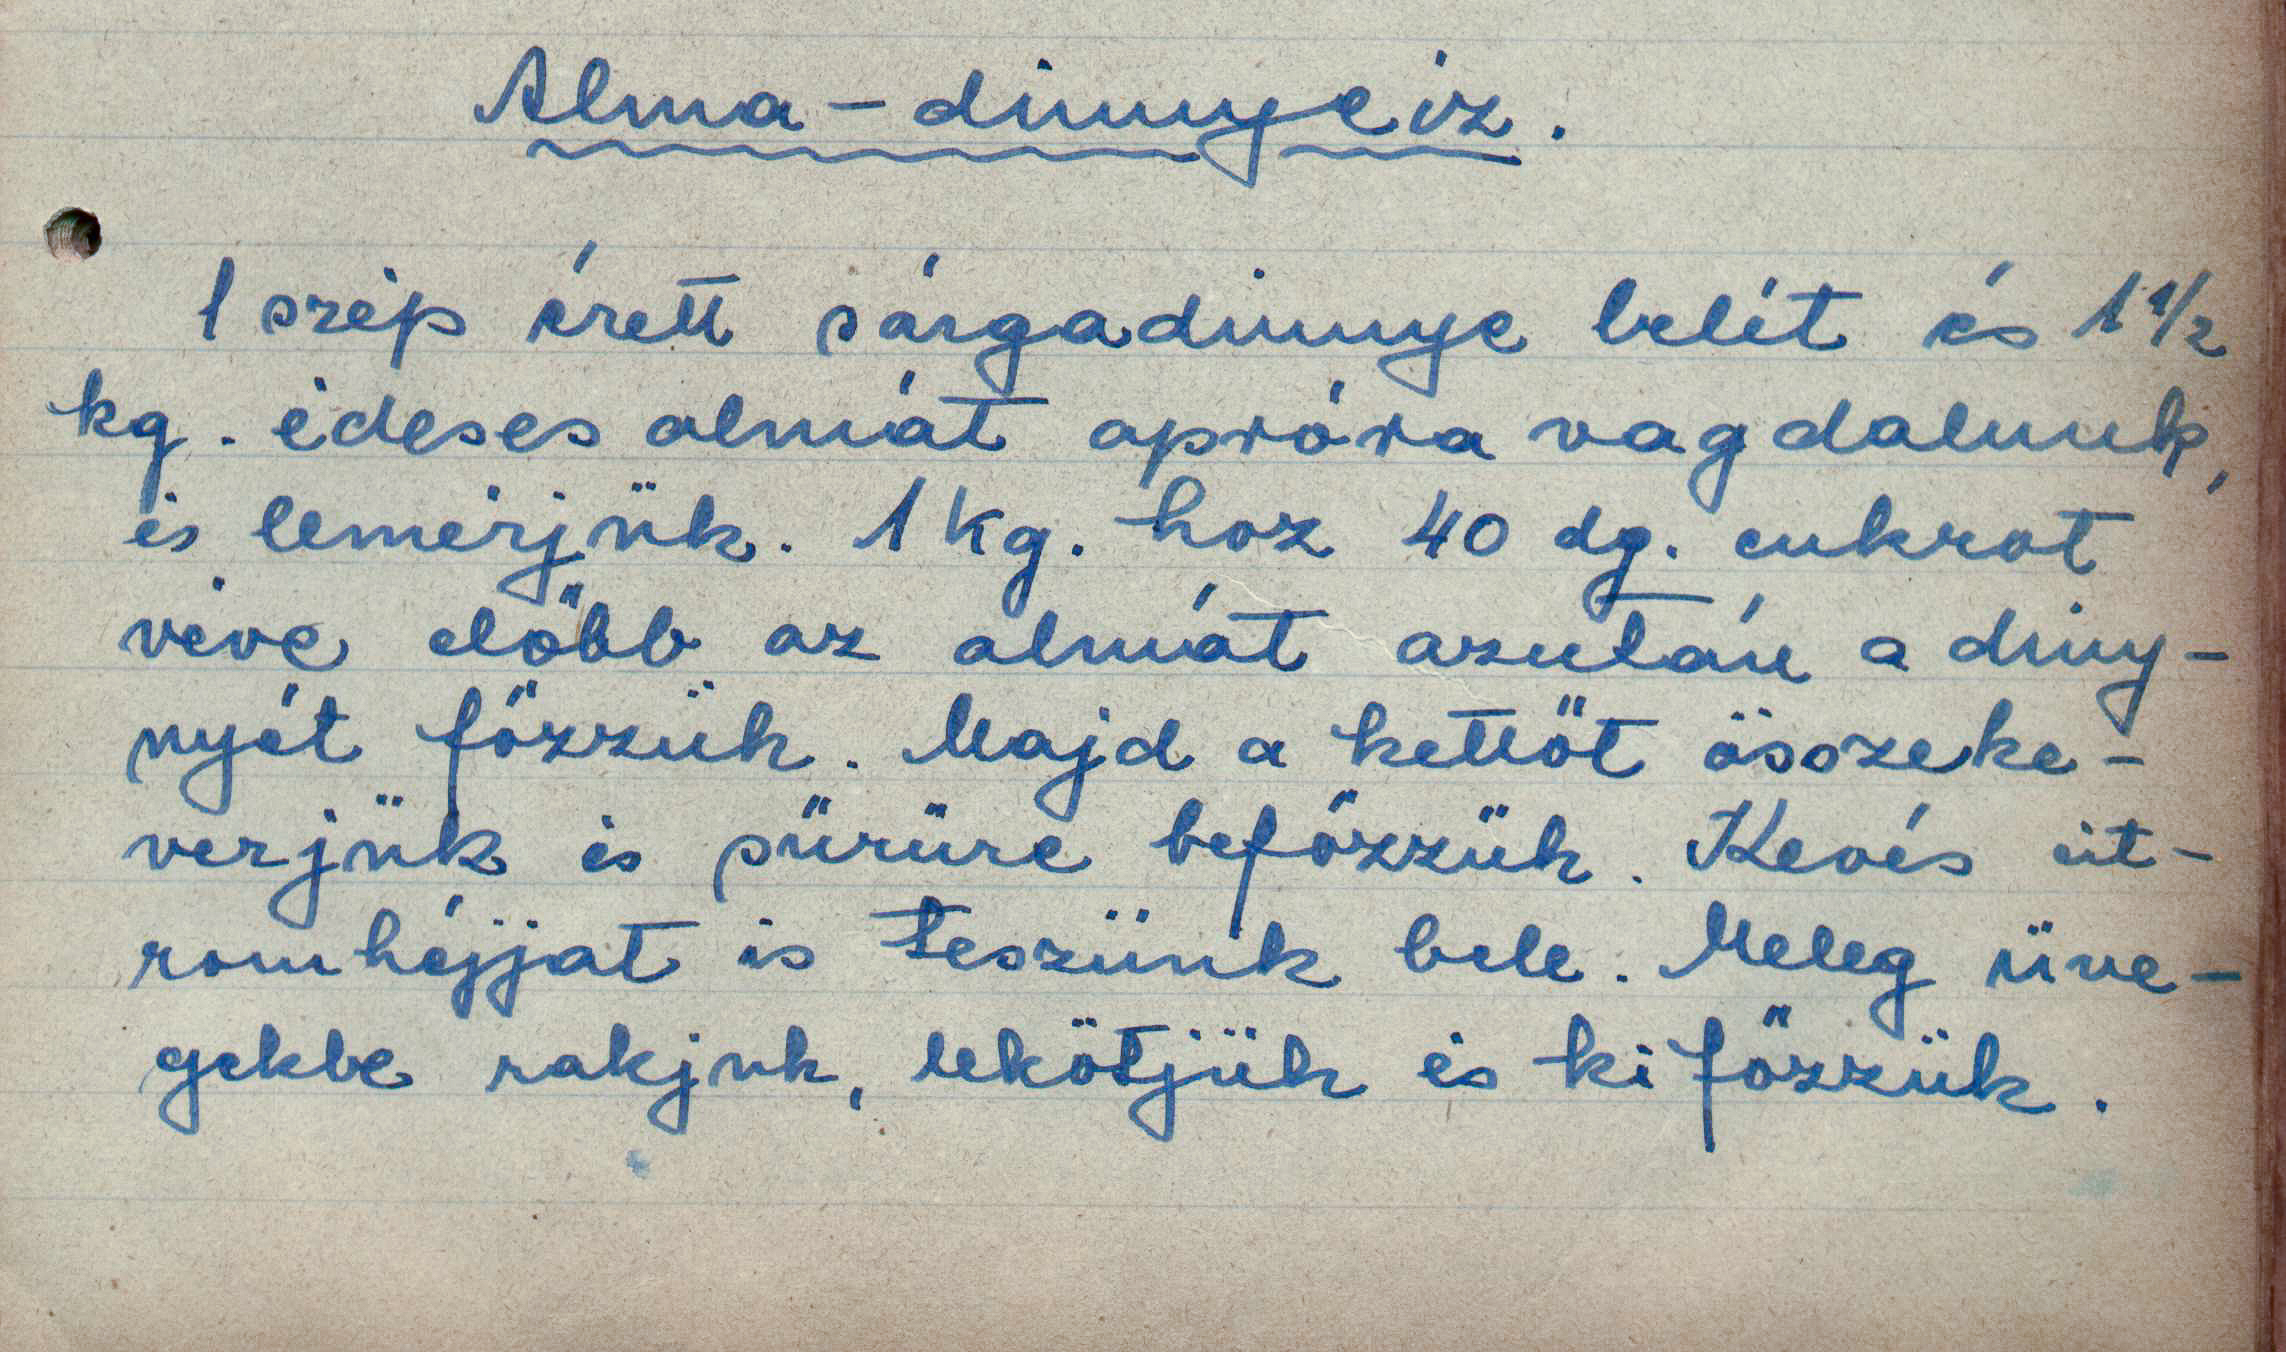 Alma - dinnyeíz.
1 szép érett sárgadinnye belét és 1 1/2
kg. édeses almát apróra vagdalunk,
és lemérjük. 1 kg. hoz 40 dg. cukrot
véve előbb az almát azután a diny-
nyét főzzük. Majd a kettőt összeke-
verjük és sűrűre befőzzük. Kevés cit-
romhéjjat is teszünk bele. Meleg üve-
gekbe rakjuk, lekötjük és kifőzzük.